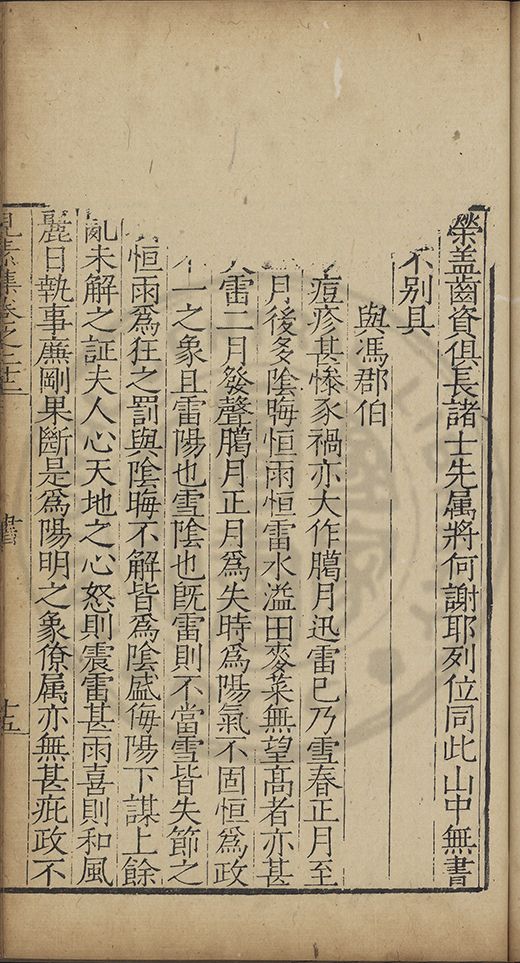 榮盖齒資俱長諸士先属將何謝耶列位同此山中無書
不别具
與馮郡伯
痘疹甚慘豕禍亦大作臈月迅雷已乃雪春正月至
月後多陰晦恒雨恒雷水溢田麥菜無望髙者亦甚
雷二月發聲臈月正月爲失時爲陽氣不固恒爲政
一之象且雷陽也雪陰也旣雷則不當雪皆失節之
恒雨爲狂之罰與陰晦不解皆爲陰盛侮陽下謀上餘
亂未解之証夫人心天地之心怒則震雷甚雨喜則和風
麗日執事廉剛果斷是爲陽明之象僚属亦無甚疵政不
見素集卷之二十二
書
十五